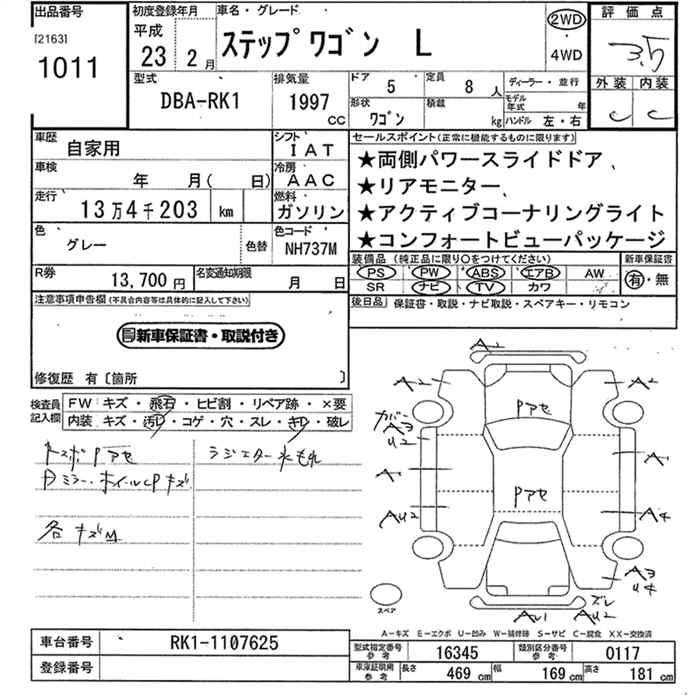 出品番号 初度登録年月 車名・グレード 評価点
[2163] 平成 2WD
1011 23年 2月 ステップワゴン L 4WD 3.5
型式 排気量 ドア 5 定員 8人 ディーラー・並行 外装 内装
DBA-RK1 1997cc 形状 ワゴン 積載 kg モデル年式 年 ハンドル 左・右 C C
車歴 自家用 シフト IAT セールスポイント(正常に機能するものに限ります)
車検 年 月( 日) 冷房 AAC ★両側パワースライドドア
★リアモニター
走行 13万4千203 km 燃料 ガソリン ★アクティブコーナリングライト
色 グレー 色替 色コード NH737M ★コンフォートビューパッケージ
装備品(純正品に限り○をつけてください) 新車保証書
R券 13,700円 名変通知期限 月 日 PS PW ABS エアB AW 有・無
SR ナビ TV カワ
注意事項申告欄(不具合内容等は具体的に記入して下さい) 後日品 保証書・取説・ナビ取説・スペアキー・リモコン
新車保証書・取説付き
修復歴 有〔箇所 〕
検査員記入欄 FW キズ・飛石・ヒビ割・リペア跡・×要
内装 キズ・汚レ・コゲ・穴・スレ・キレ・破レ
ドスポPアセ ラジエター水もれ
Dミラー・ホイールCPキズ
各キズM
A2
A2 A2
Pアセ
カバーA3
U2
A1 A1
Pアセ
AU2 A4
A3
U4
スペア ズレ
AU1 AU2
A-キズ E-エクボ U-凹み W-補修跡 S-サビ C-腐食 XX-交換済
車台番号 RK1-1107625 型式指定番号 参考 16345 類別区分番号 参考 0117
登録番号 車庫証明用 参考 長さ 469 cm 幅 169 cm 高さ 181 cm